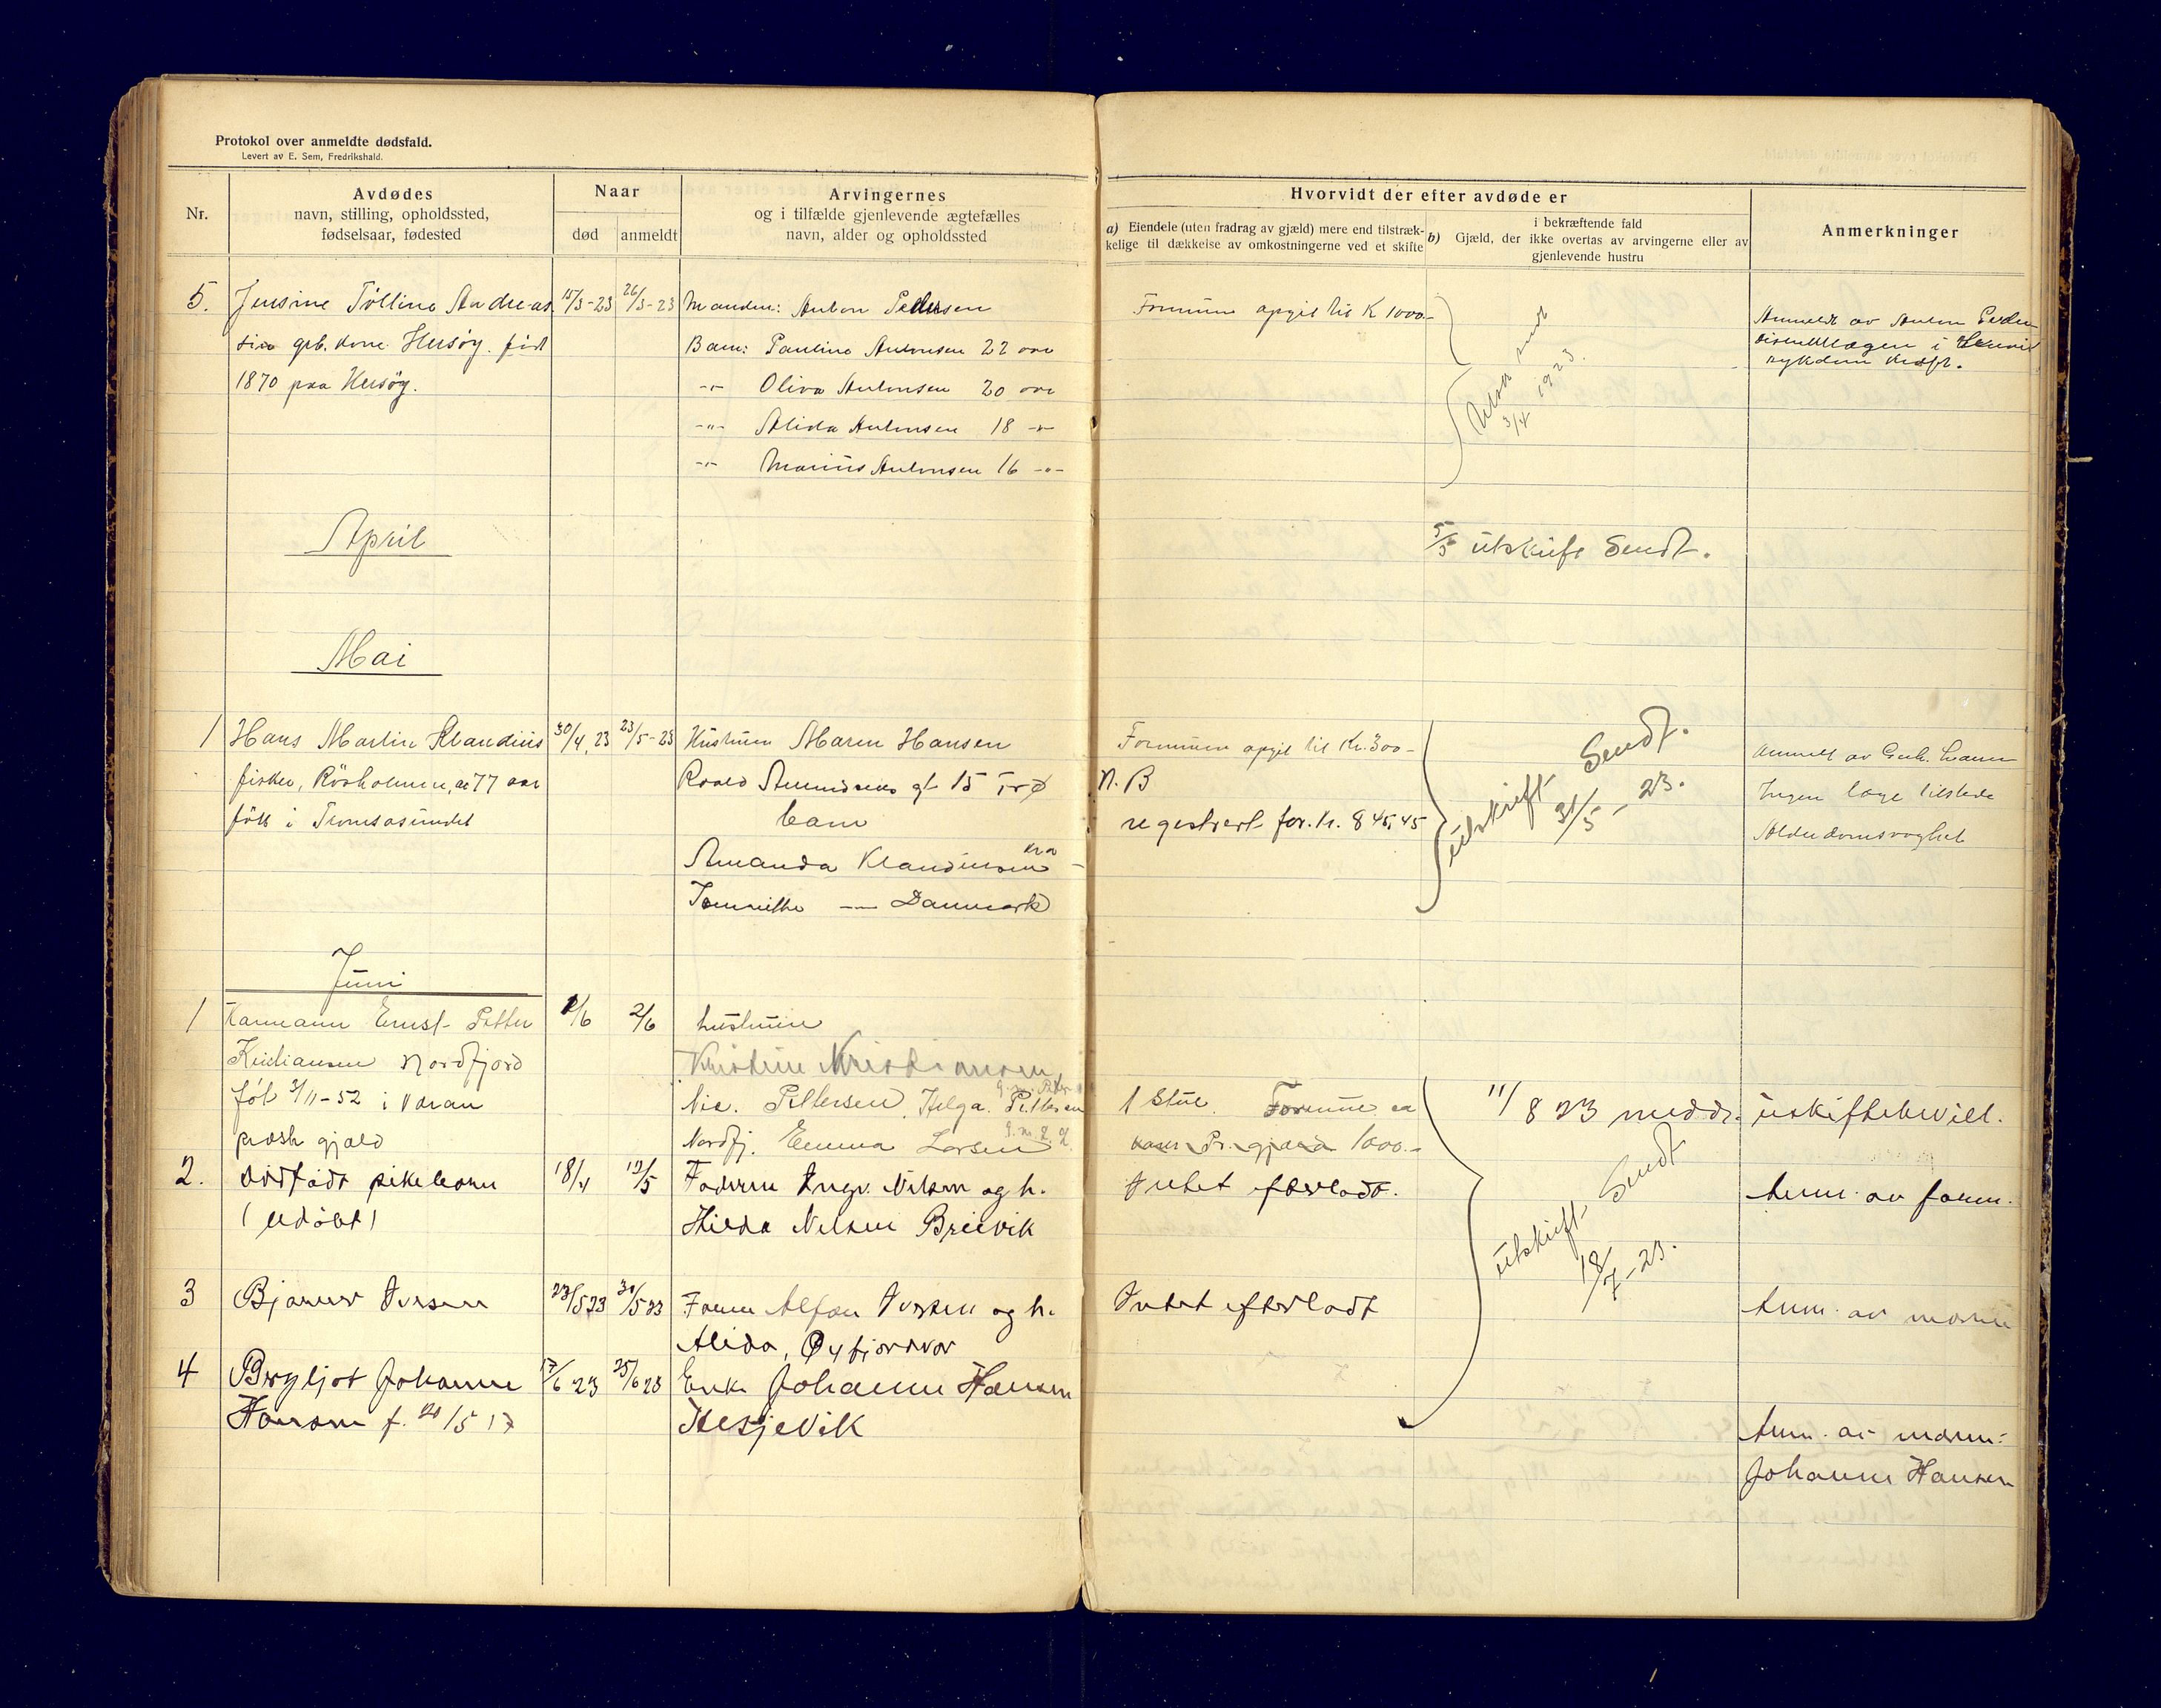 Protokol over anmeldte dødsfald.
Levert av E. Sem, Fredrikshald.
Nr.
Avdødes
navn, stilling, opholdssted,
fødselsaar, fødested
Naar
død
anmeldt
Arvingernes
og i tilfælde gjenlevende ægtefælles
navn, alder og opholdssted
Hvorvidt der efter avdøde er
a) Eiendele (uten fradrag av gjæld) mere end tilstræk-
kelige til dækkelse av omkostningerne ved et skifte
i bekræftende fald
b) Gjæld, der ikke overtas av arvingerne eller av
gjenlevende hustru
Anmerkninger
5.
Jensine Tølline Andreas
sin grb. kone Hersøy. født
1870 paa Hersøy.
15/3-23
26/3-23
Manden: Anton Pedersen
Barn: Pauline Antonsen 22 aar
-"- Oliva Antonsen 20 aar
-"- Alida Antonsen 18 -"-
-"- Marius Antonsen 16 -"-
Formuen opgit til K 1000.-
Utskr sendt
3/4 1923.
Anmeldt av Anton Peder
sygdom kræft.
April
5/5 utskrift Sendt.
Mai
1
Hans Martin Klaudius
fisker, Rösholmen, ca 77 aar
föt i Tromsøsundet
30/4, 23
23/5-23
Hustruen Maren Hansen
Roald Amundsens gt 15 Trø
barn
Amanda Klaudiussen
Danmark
Formuen opgit til Kr. 300-
N. B
regestrert for. Kr. 845,45
utskrift Sendt.
31/5-23.
anmelt av Enk. Maren
Ingen læge tilstede
Alderdomsvaghet
Juni
1
Karmann Ernst Petter
Kristiansen Nordfjord
föt 3/11-52 i
præst gjæld
1/6
2/6
hustruen
Kristine Kristiansen
Nic. Pettersen, Helga. Pettersen
Nordfj. Emma Larsen
1 Stue. Formue ca
1000.-
11/8 23 meddt. uskiftebevill.
2.
dødfødt pikebarn
(udøbt)
18/4
19/5
Faderen Ingv. Nilsen og h.
Hilda Nilsen Breivik
Intet efterladt.
Anm. av faren.
utskrift Sendt
18/7-23.
3
Bjarne Iversen
23/5 23
30/5 23
Faren Alfon Iversen og h.
Alida, Øyfjordvær
Intet efterladt
Anm. av moren
4
Bergljot Johanne
Hansen f. 20/5 17
17/6 23
25/6 23
Enke Johanne Hansen
Hesjevik
Anm. av moren:
Johanne Hansen